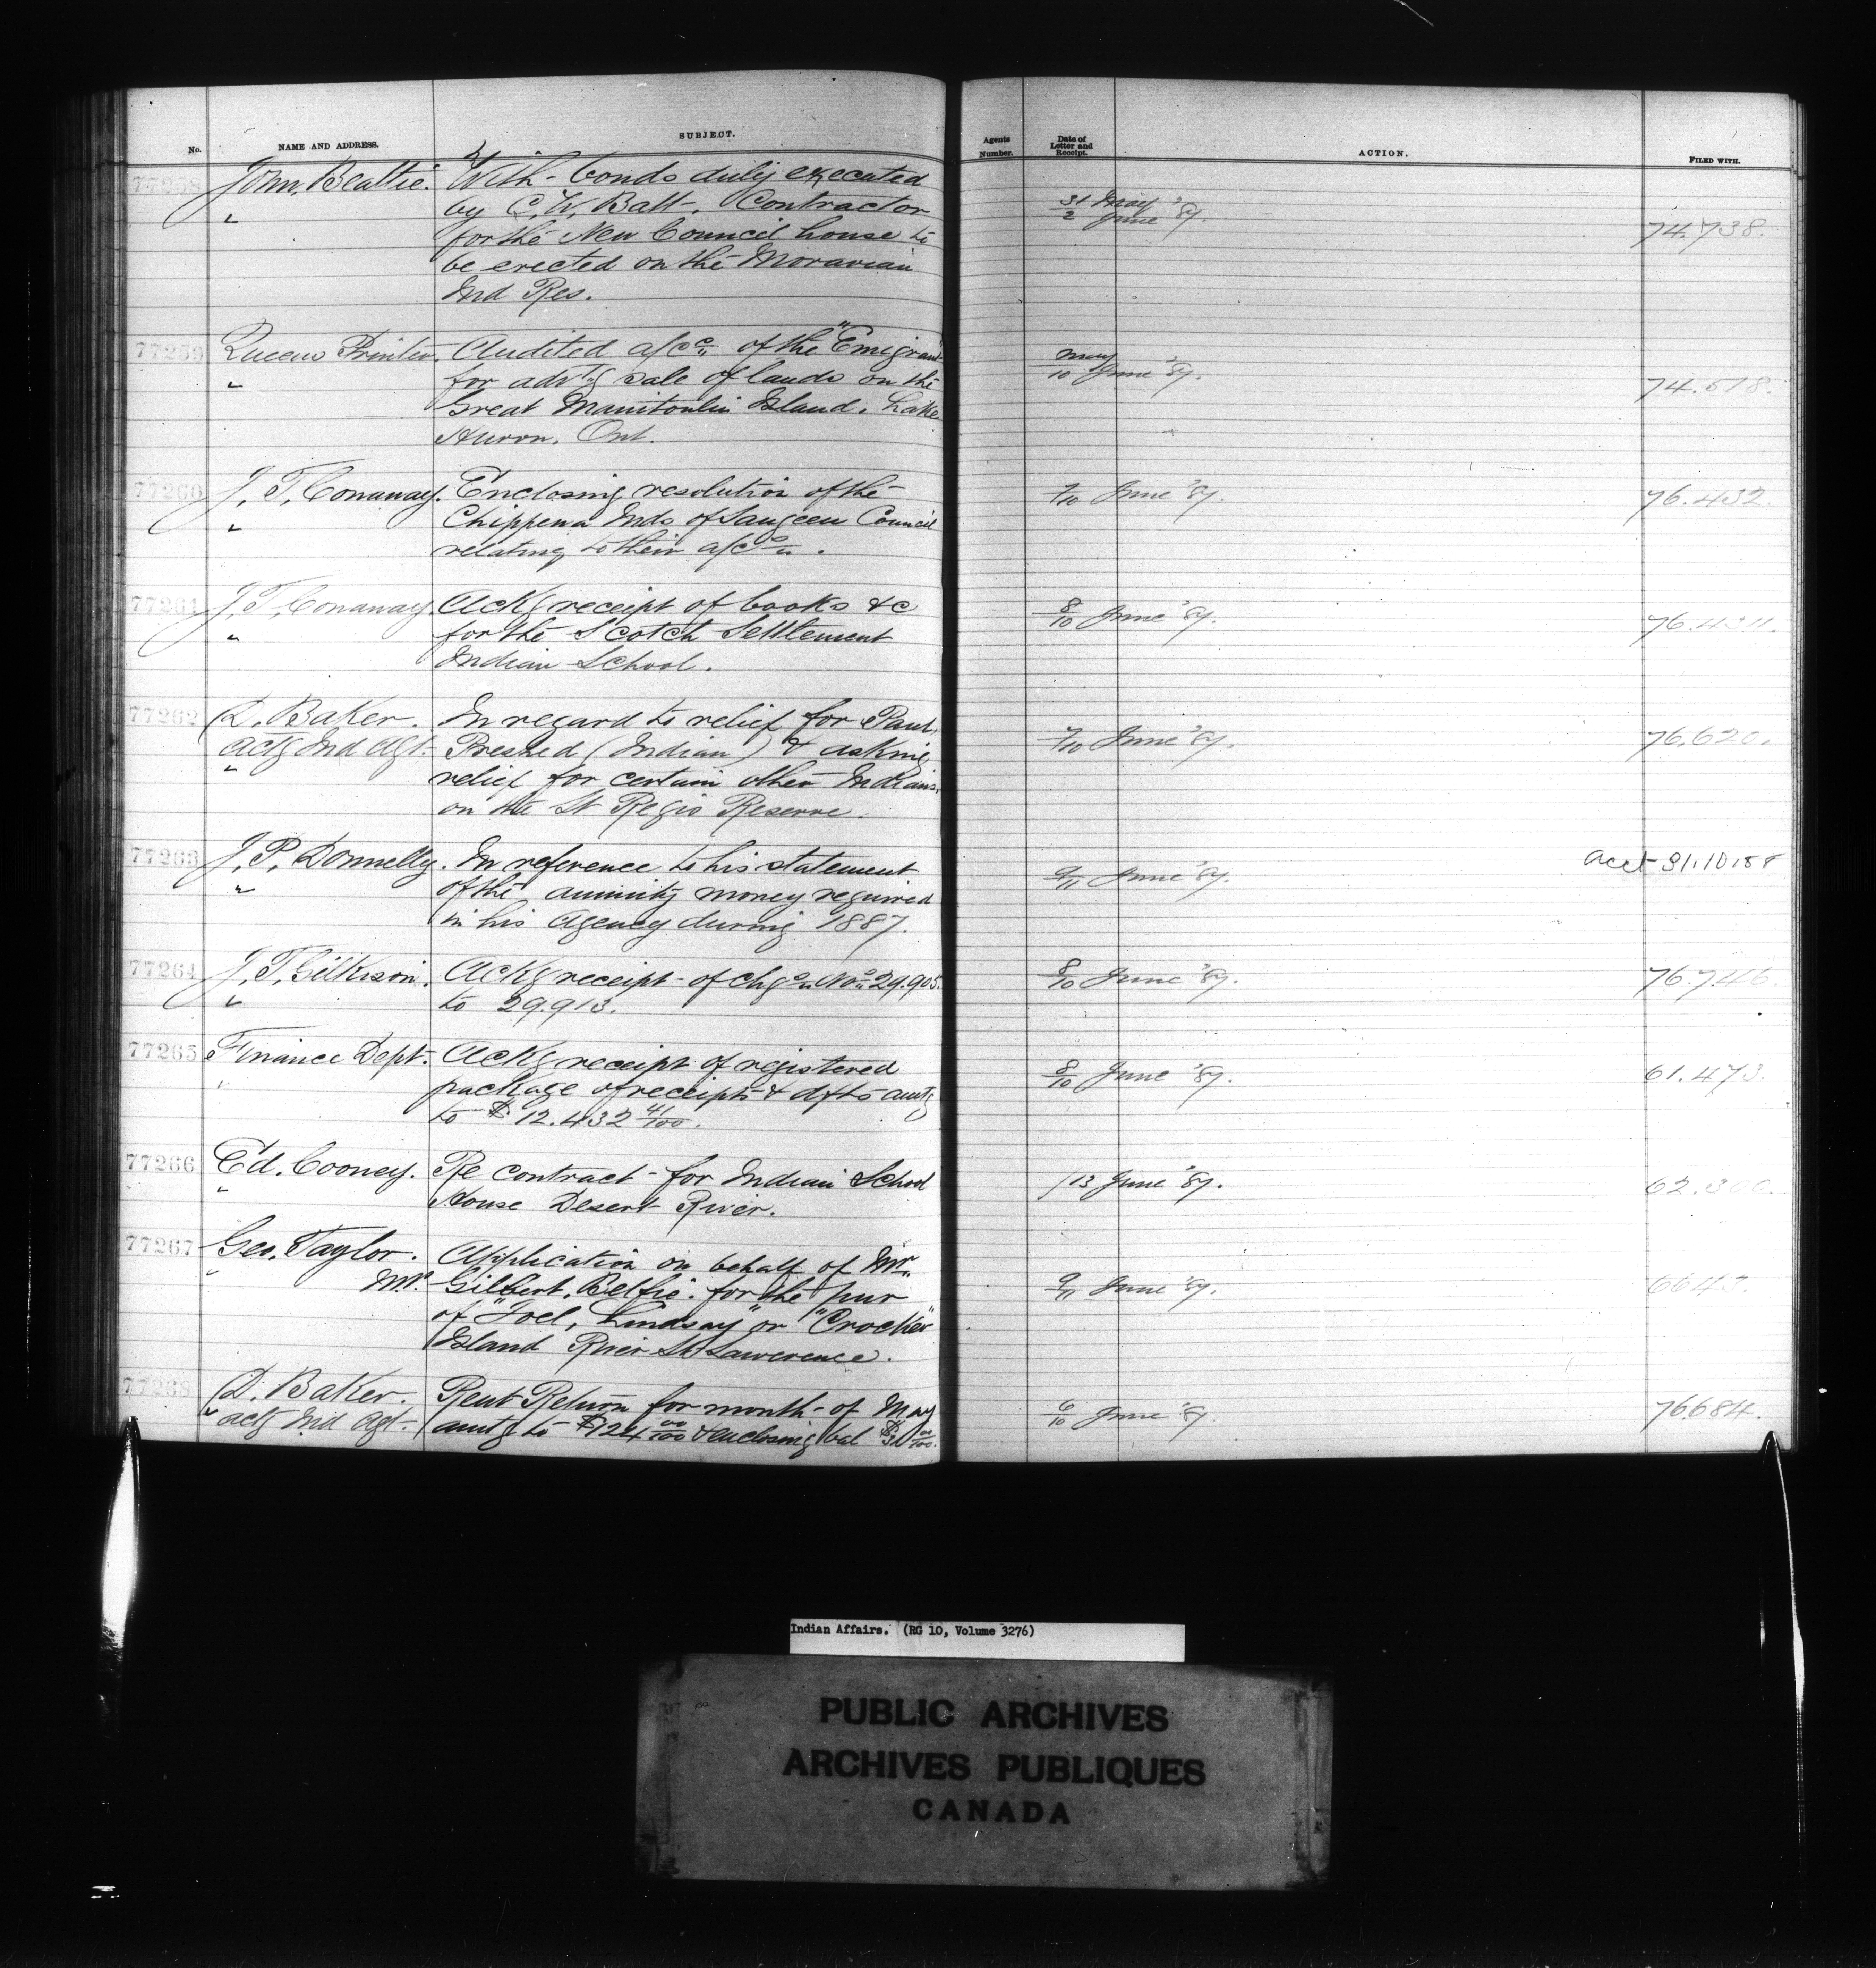 No. NAME AND ADDRESS. SUBJECT. Agents Number. Date of Letter and Receipt. ACTION. FILED WITH.
77258 John. Beattie. With bonds duly executed
" by C. W. Batt. Contractor 31/2 May June '87. 74.738.
for the New Council house to
be erected on the Moravian
Ind Res.
77259 Queens Printer. Audited a/cc of the "Emigrant
" for advtg sale of lands on the May/10 June '87. 74.578.
Great Manitoulin Island. Lake
Huron. Ont.
77260 J. T. Conaway. Enclosing resolution of the 7/10 June '87. 76.432.
" Chippewa Inds of Saugeen Council
relating to their a/cs.
77261 J. T. Conaway Ackg receipt of books &c 8/10 June '87.
" for the Scotch Settlement
Indian School.
77262 D. Baker. In regard to relief for Paul 7/10 June '87. 76.620.
Actg Ind Agt. (Indian) & asking
" relief for certain other Indians.
on the St Regis Reserve.
77263 J. P. Donnelly. In reference to his statement 9/11 June '87.
" of the annuity money required
in his Agency during 1887.
77264 J. T. Gilkison. Ackg receipt of chqs Nos 29.905. 8/10 June '87. 76.746.
" to 29.913.
77265 Finance Dept. Ackg receipt of registered 8/10 June '87. 61.473.
" package of receipts & dfts amtg
to $ 12.432 41/100.
77266 Ed. Cooney. Re contract for Indian School /13 June '87. 62.300.
" House Desert River.
77267 Geo. Taylor. Application on behalf of Mr.
" M.P. Gilbert. Belfie. for the pur 9/11 June '87.
of "Joel, Lindsay" or "Crocker"
Island River St Lawerence.
77268 D. Baker. Rent Return for month of May 6/10 June '87. 76684.
" actg Ind Agt. amtg to $124 00/100 & enclosing bal
Indian Affairs. (RG 10, Volume 3276)
PUBLIC ARCHIVES
ARCHIVES PUBLIQUES
CANADA